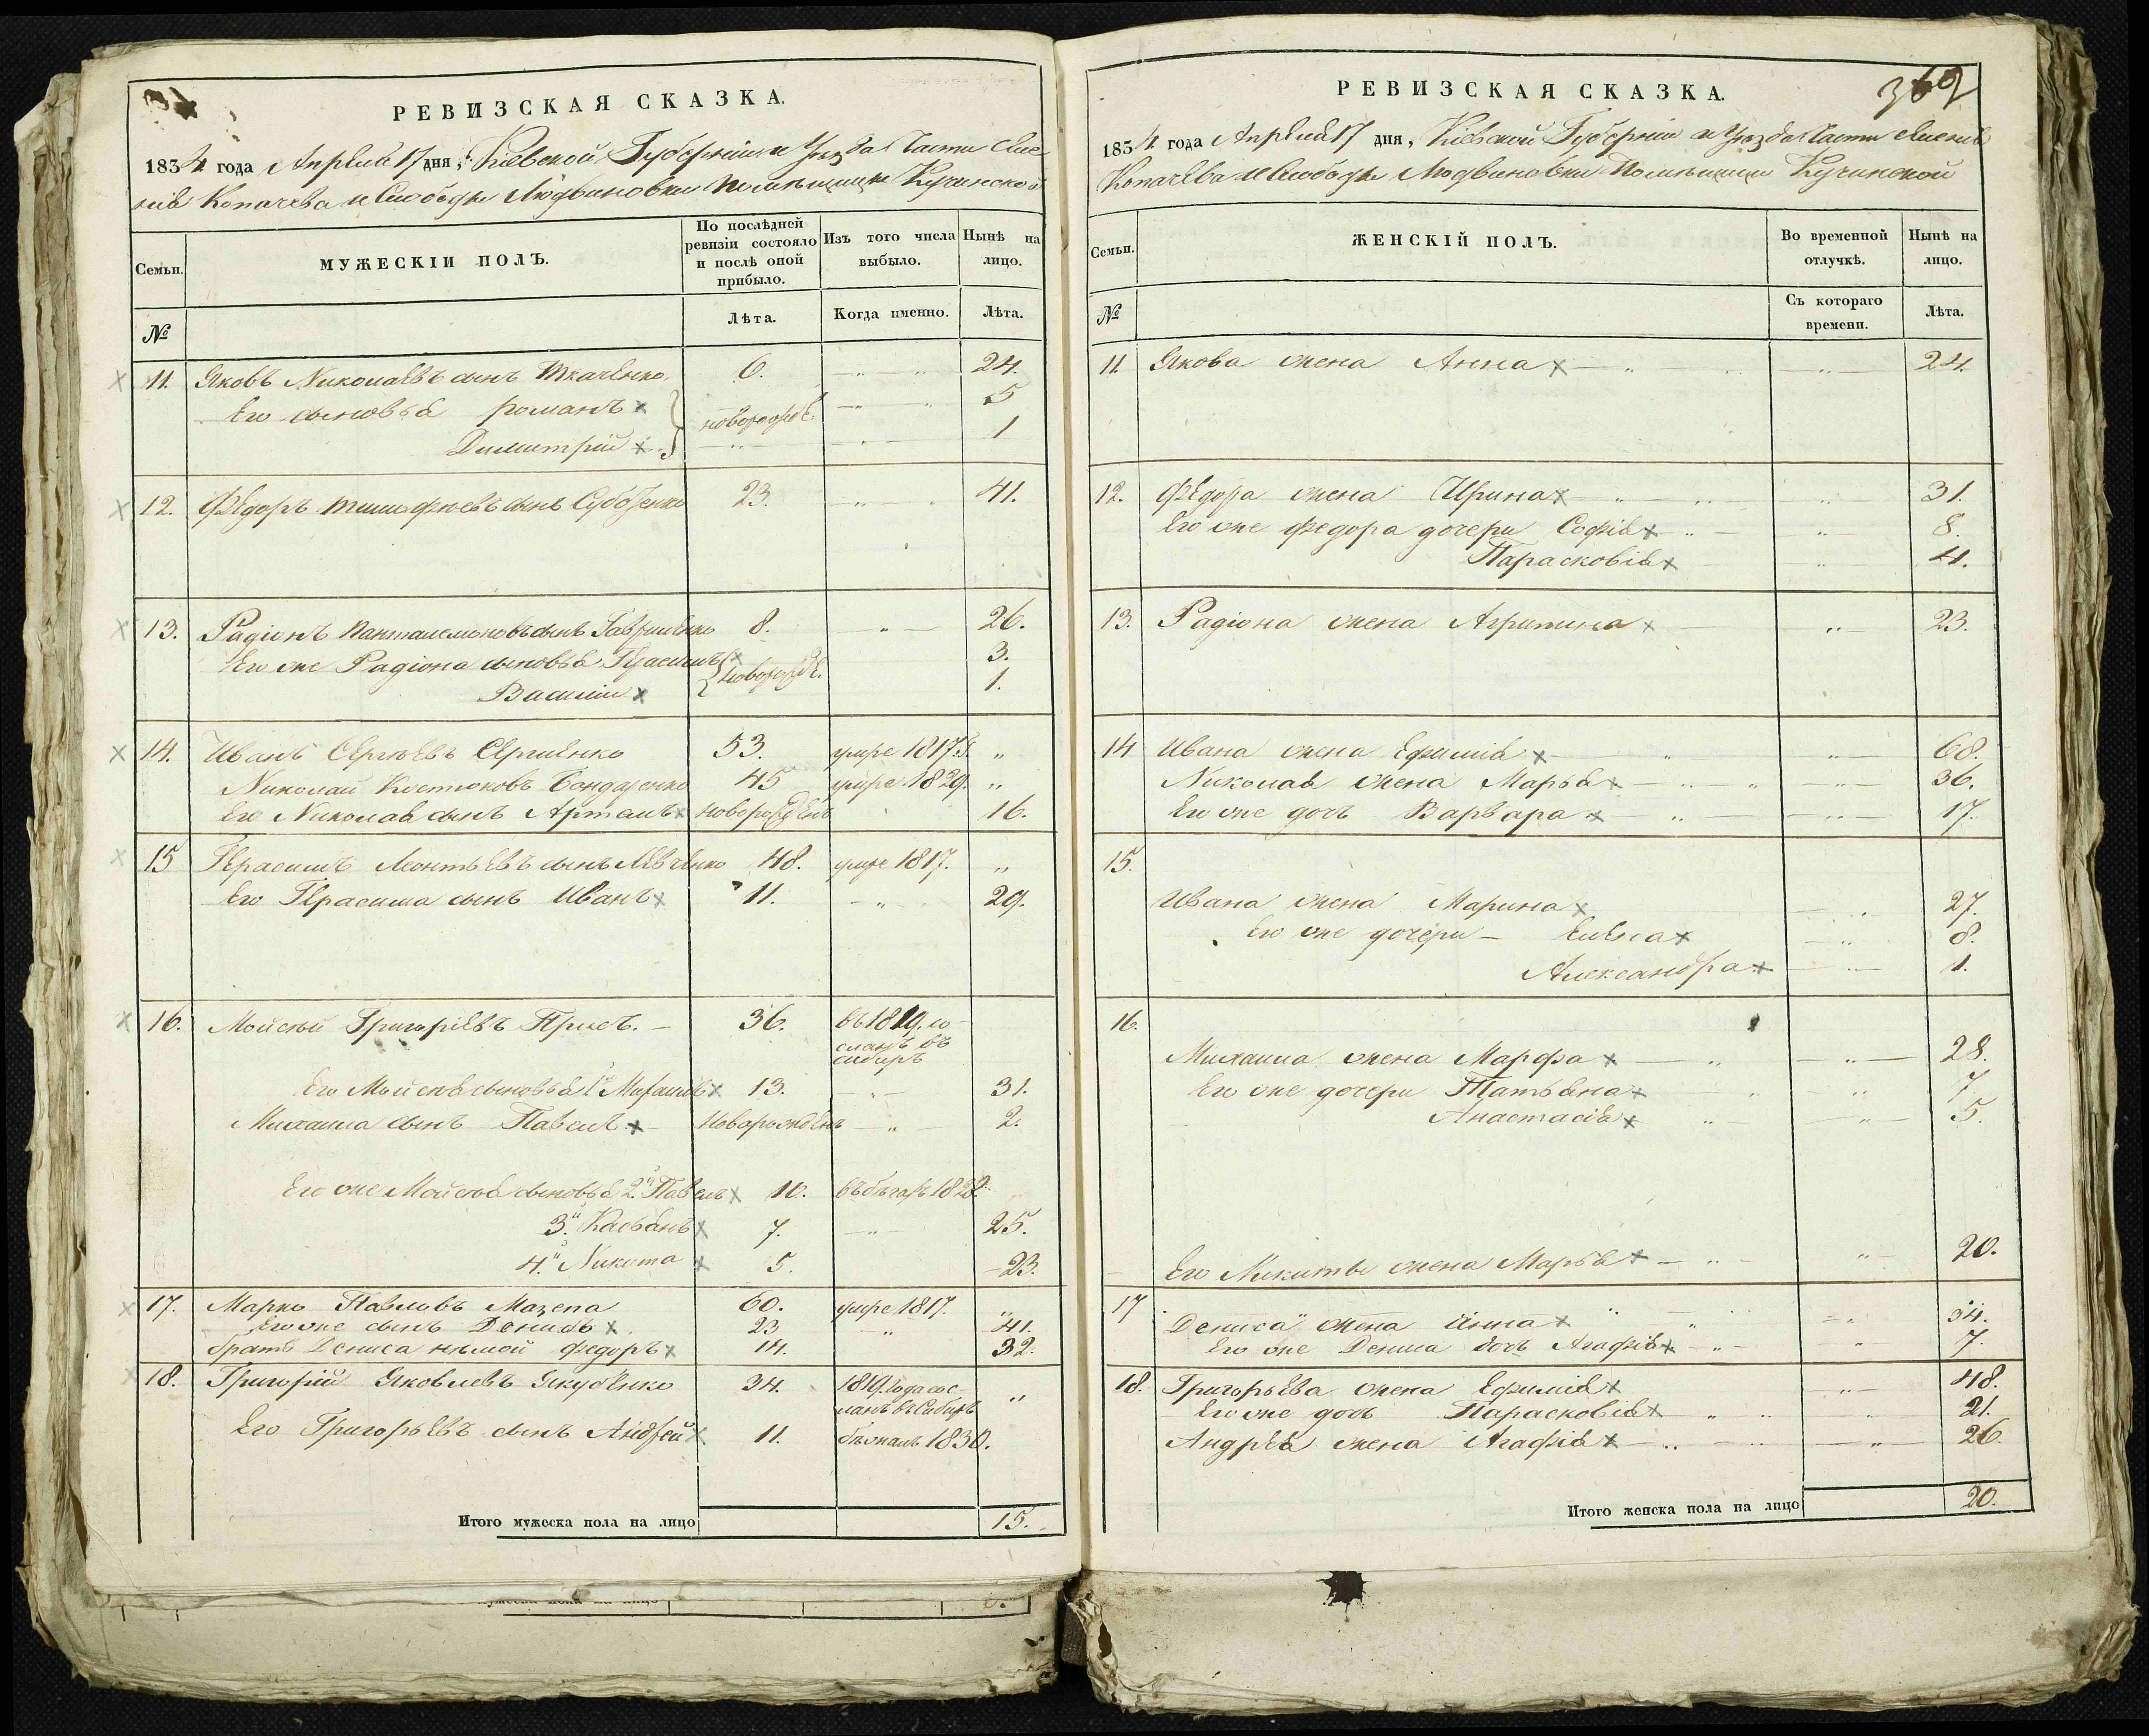 РЕВИЗСКАЯ СКАЗКА.
1834 года Апреля 17 дня, Кіевской Губерніи и Уезда Части
Копачева и Слободы Людвиновки Помѣщицы Кучинской
Семьи. МУЖЕСКІЙ ПОЛЪ. По послѣдней ревизіи состояло и послѣ оной прибыло. Изъ того числа выбыло. Нынѣ на лицо.
№ Лѣта. Когда именно. Лѣта.
11. Яковъ Николаевъ сынъ Ткаченко. 6. 24.
Его сыновья романъ новорожде. 5
Димитрій 1
12. Федоръ сынъ 23. 41.
13. Радіонъ Пантелемоновъ сынъ Гавриленко 8. 26.
Его же Радіона сыновья Герасимъ новорожде. 3.
Василій 1.
14. Иванъ Сергѣевъ Сергіенко 53. умре 1817. "
Николай Костюковъ Бондаренко 45 умре 1829. "
Его Николая сынъ Артемъ новорожденъ 16.
15 Герасимъ Леонтьевъ сынъ Левченко 48. умре 1817. "
Его Герасима сынъ Иванъ 11. 29.
16. Мойсей Григоріевъ 36. въ 1819. со
сланъ въ
сибиръ
Его Мойсея сыновья 1й Михаилъ 13. 31.
Михаила сынъ Павелъ Новорожденъ 2.
Его же Мойсея сыновья 2й Павелъ 10. въ бѣгахъ 1828.
3й Касьянъ 7. 25.
4й Никита 5. 23.
17. Марко Павловъ Мазепа 60. умре 1817. "
Его же сынъ Денисъ 23 41.
братъ Дениса нѣмой федоръ 14. 32.
18. Григорій Яковлевъ Якубенко 34. 1819. года сос "
ланъ въ Сибирь
Его Григорьевъ сынъ Андрей 11. бѣжалъ 1830.
Итого мужеска пола на лицо 15.
РЕВИЗСКАЯ СКАЗКА. 369
1834 года Апрѣля 17 дня, Кіевской Губерніи и Уезда Части
Копачева и Слободы Людвиновки Помѣщицы Кучинской
Семьи. ЖЕНСКІЙ ПОЛЪ. Во временной отлучкѣ. Нынѣ на лицо.
№ Съ котораго времени. Лѣта.
11. Якова жена Анна 24.
12. Федора жена Ирина 31.
Его же Федора дочери Софія 8.
Парасковія 4.
13. Радіона жена Агрипина 23.
14 Ивана жена Ефимія 68.
Николая жена Марья 36.
Его же дочъ Варвара 17.
15.
Ивана жена Марина 27.
Его же дочери Елена 8.
Александра 1.
16.
Михаила жена Марфа 28.
Его же дочери Татьяна 7
Анастасія 5.
Его Никиты жена Марья 20.
17 Дениса жена Анна 34.
Его же Дениса дочъ Агафія 7.
18. Григорьева жена Ефимія 48.
Его же дочъ Парасковія 21.
Андрея жена Агафія 26.
Итого женска пола на лицо 20.